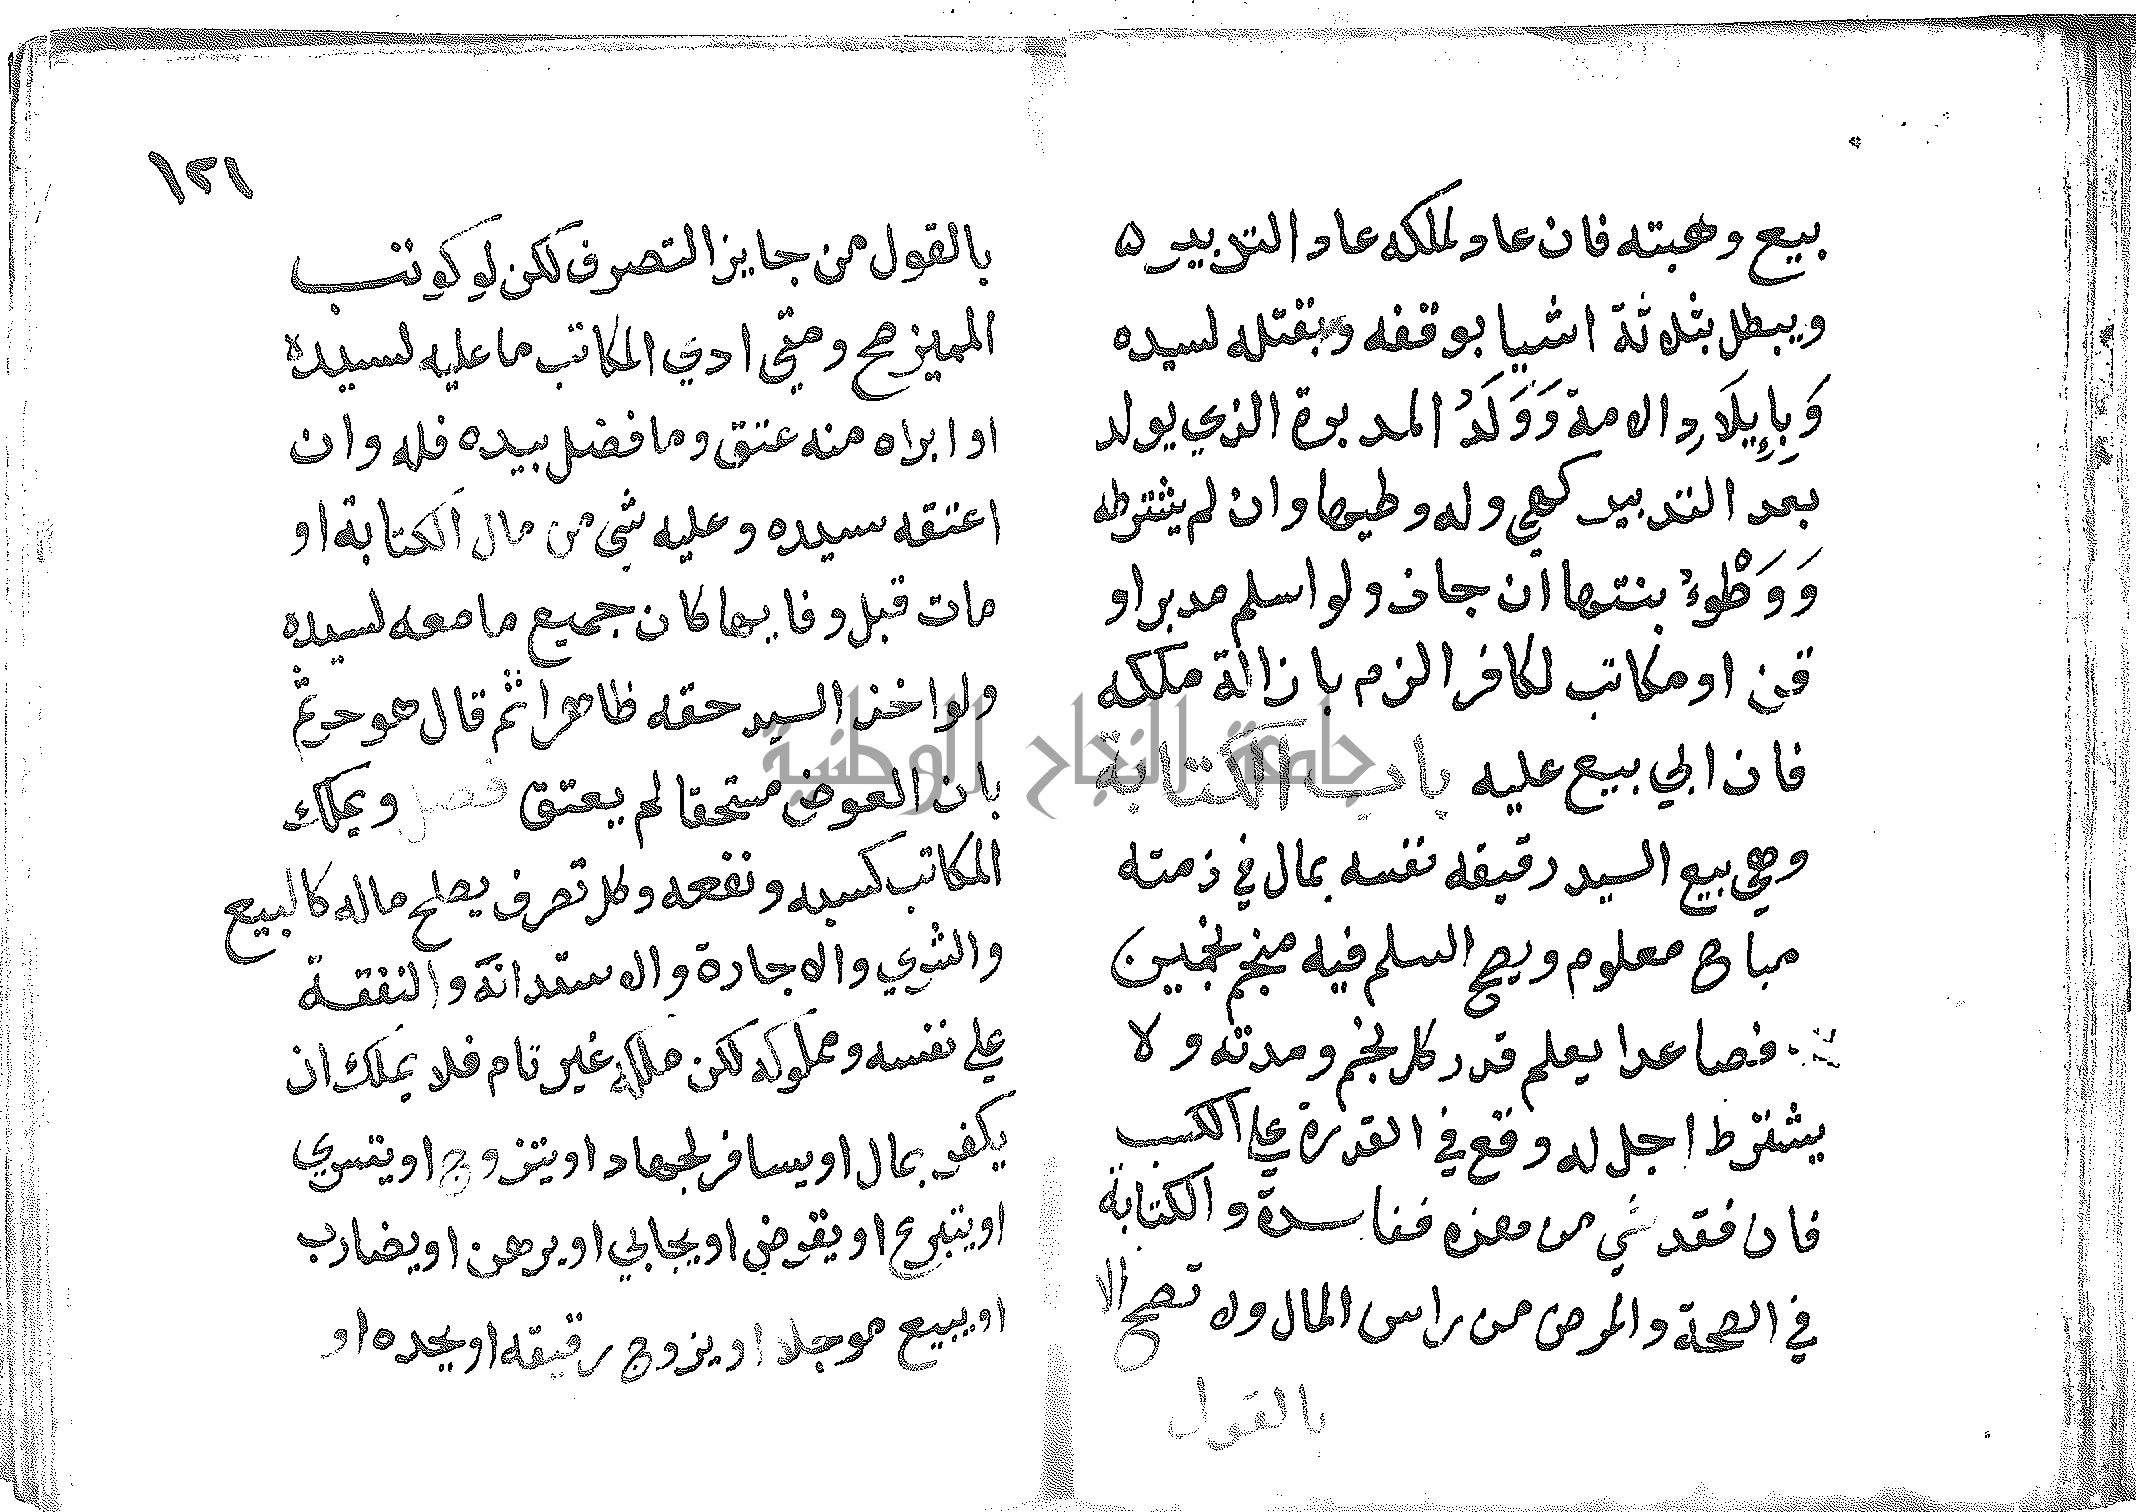 بيع وهبته فان عاد لملكه عاد التدبير ٥
ويبطل بثلاثة اشيا بوقفه وبقتله لسيده
وَبِإِيلَادِ الامة وَوَلَدُ المدبورة الذي يولد
بعد التدبير كهي وله وطيها وان لم يشترطه
وَوَطْوءُ بنتها ان جاز ولو اسلم مدبر او
قن او مكاتب لكافر الزم بازالة ملكه
فان ابي بيع عليه باب الكتابة
وهي بيع السيد رقيقه نفسه بمال في ذمته
مباح معلوم ويصح السلم فيه منجم نجمين
فصاعدا يعلم قدر كل نجم ومدته ولا
يشترط اجل له وقع في القدرة علي الكسب
فان فقد شي من هذه ففاسدة والكتابة
في الصحة والمرض من راس المال ولا تصح الا
بالقول
١٢١
بالقول من جايز التصرف لكن لو كوتب
المميز صح ومتي ادي المكاتب ما عليه لسيده
او ابراه منه عتق وما فضل بيده فله وان
اعتقه سيده وعليه شي من مال الكتابة او
مات قبل وفايها كان جميع ما معه لسيده
ولو اخذ السيد حقه ظاهرا ثم قال هو حر ثم
بان العوض مستحقا لم يعتق فصل ويملك
المكاتب كسبه ونفعه وكل تصرف يصلح ماله كالبيع
والشري والاجارة والاستدانة والنفقة
علي نفسه ومملوكه لكن ملكه غير تام فلا يملك ان
يكفر بمال او يسافر لجهاد او يتزوج او يتسري
او يتبرع او يقرض او يحابي او يرهن او يضارب
او يبيع موجلا او يزوج رقيقه او يحده او
جامعة النجاح الوطنية